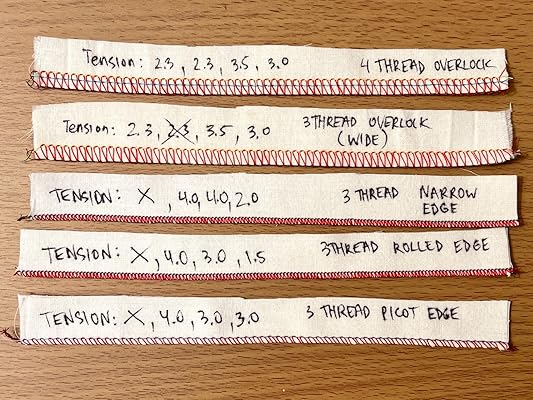 Tension: 2.3, 2.3, 3.5, 3.0 4 THREAD OVERLOCK
Tension: 2.3, 2.3, 3.5, 3.0 3 THREAD OVERLOCK
(WIDE)
TENSION: X, 4.0, 4.0, 2.0 3 THREAD NARROW
EDGE
TENSION: X, 4.0, 3.0, 1.5 3 THREAD ROLLED EDGE
TENSION: X, 4.0, 3.0, 3.0 3 THREAD PICOT EDGE